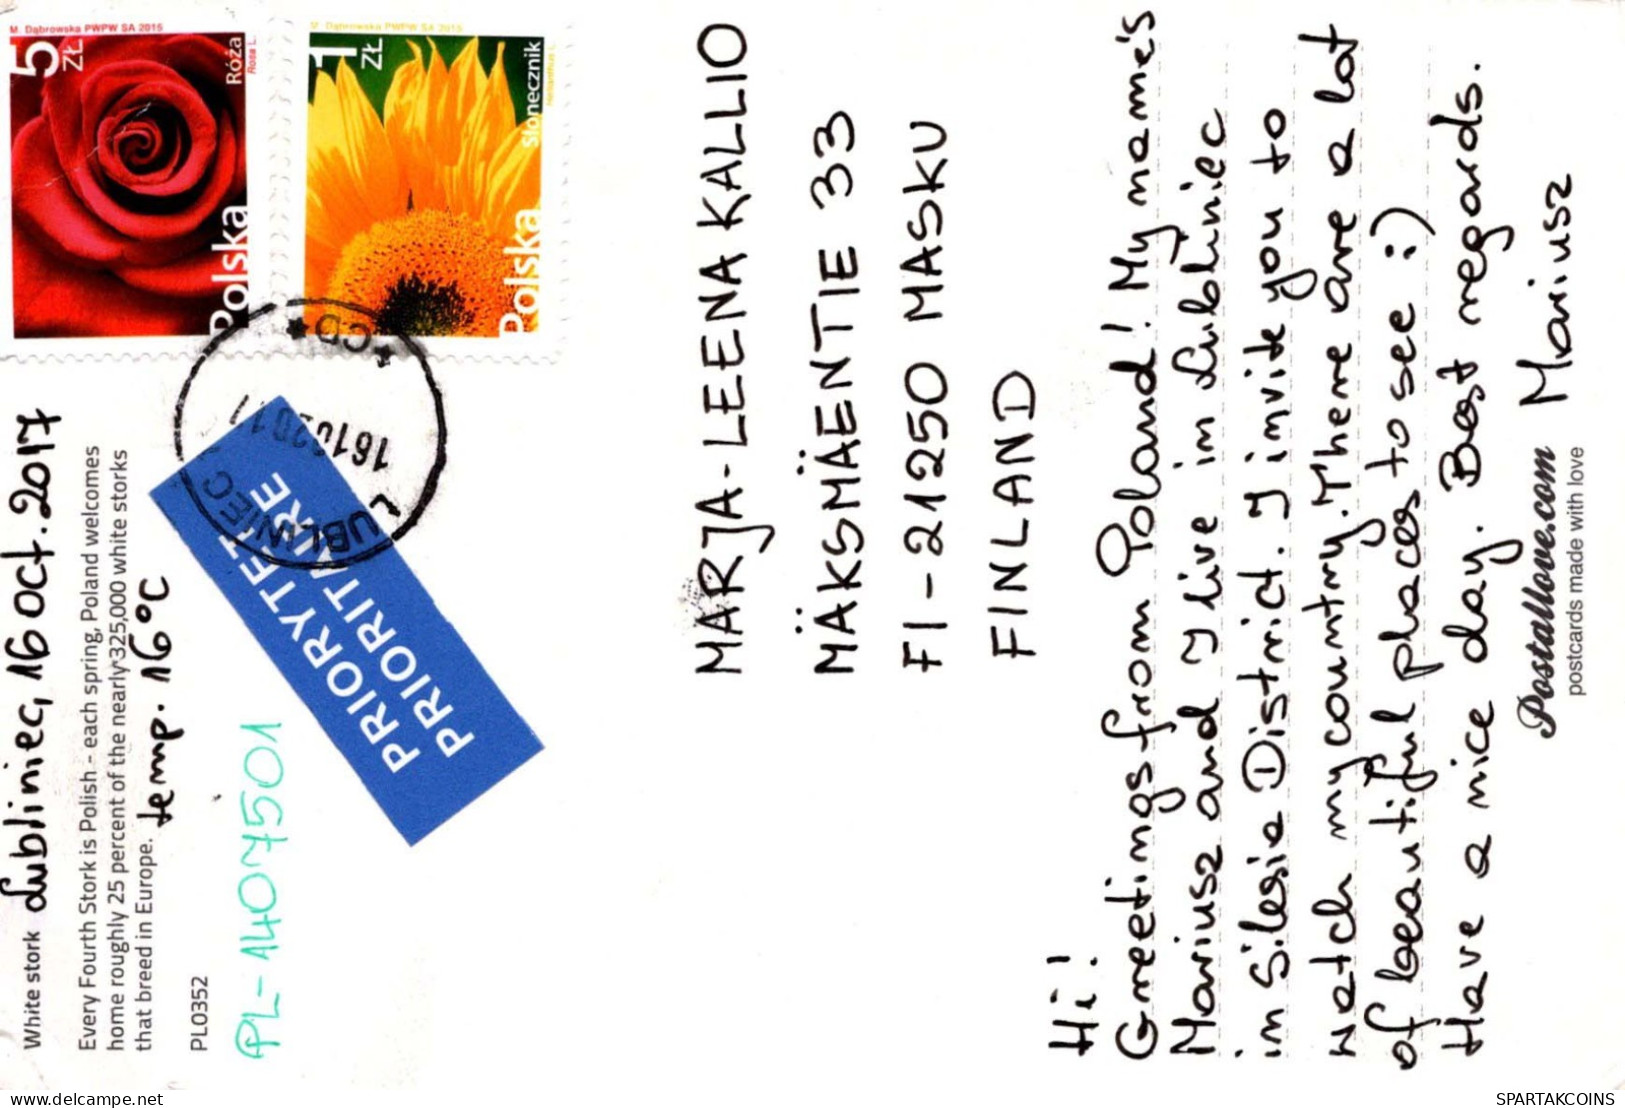 White stork Lubliniec, 16 Oct. 2017
Every Fourth Stork is Polish - each spring, Poland welcomes
home roughly 25 percent of the nearly 325,000 white storks
that breed in Europe. temp. 16°C
PL0352
PL-1407501
M. Dąbrowska PWPW SA 2015
5 ZŁ
Róża
Rosa L.
Polska
M. Dąbrowska PWPW SA 2015
1 ZŁ
Słonecznik
Helianthus L.
Polska
PRIORYTET
PRIORITAIRE
LUBLINIEC
MARJA-LEENA KALLIO
MÄKSMÄENTIE 33
FI-21250 MASKU
FINLAND
Hi!
Greetings from Poland! My name's
Mariusz and I live in Lubliniec
in Silesia District. I invite you to
watch my country. There are a lot
of beautiful places to see :)
Have a nice day. Best regards.
Mariusz
Postallove.com
postcards made with love
SPARTAKCOINS
ma-shops.com